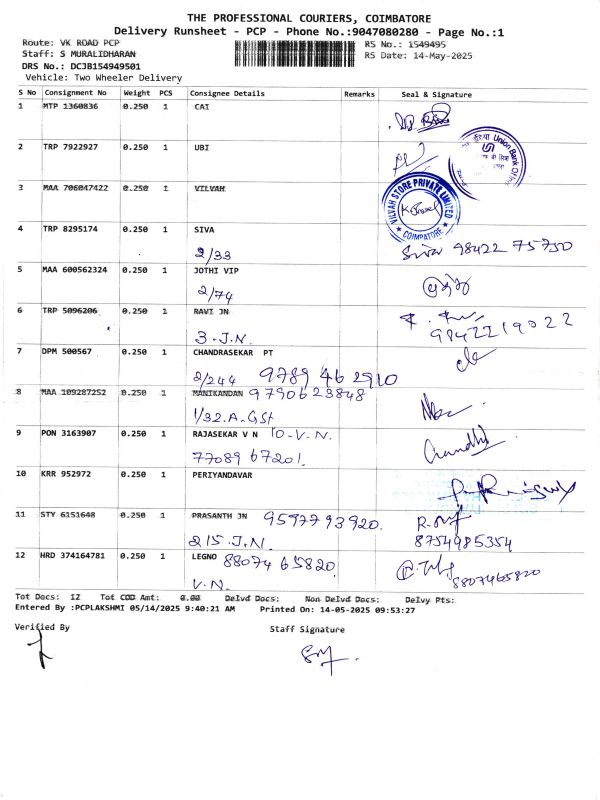 THE PROFESSIONAL COURIERS, COIMBATORE
Delivery Runsheet - PCP - Phone No.:9047080280 - Page No.:1
Route: VK ROAD PCP RS No.: 1549495
Staff: S MURALIDHARAN RS Date: 14-May-2025
DRS No.: DCJB154949501
Vehicle: Two Wheeler Delivery
S No Consignment No Weight PCS Consignee Details Remarks Seal & Signature
1 MTP 1360836 0.250 1 CAI
2 TRP 7922927 0.250 1 UBI
Union Bank Of
3 MAA 706047422 0.250 1 VILVAH
VILVAH STORE PRIVATE LIMITED
★ COIMBATORE ★
4 TRP 8295174 0.250 1 SIVA
2/33 Siva 98422 75750
5 MAA 600562324 0.250 1 JOTHI VIP
2/74
6 TRP 5096206 0.250 1 RAVI JN
3-J.N. 9842219022
7 DPM 500567 0.250 1 CHANDRASEKAR PT
2/244 9789 462910
8 MAA 109287252 0.250 1 MANIKANDAN 9790623848
1/32.A.GSt
9 PON 3163907 0.250 1 RAJASEKAR V N 10-V.N.
77089 67201.
10 KRR 952972 0.250 1 PERIYANDAVAR
11 STY 6151648 0.250 1 PRASANTH JN 9597793920.
215.J.N. 8754985354
12 HRD 374164781 0.250 1 LEGNO 88074 65820
V.N. 8807465820
Tot Docs: 12 Tot COD Amt: 0.00 Delvd Docs: Non Delvd Docs: Delvy Pts:
Entered By :PCPLAKSHMI 05/14/2025 9:40:21 AM Printed On: 14-05-2025 09:53:27
Verified By Staff Signature